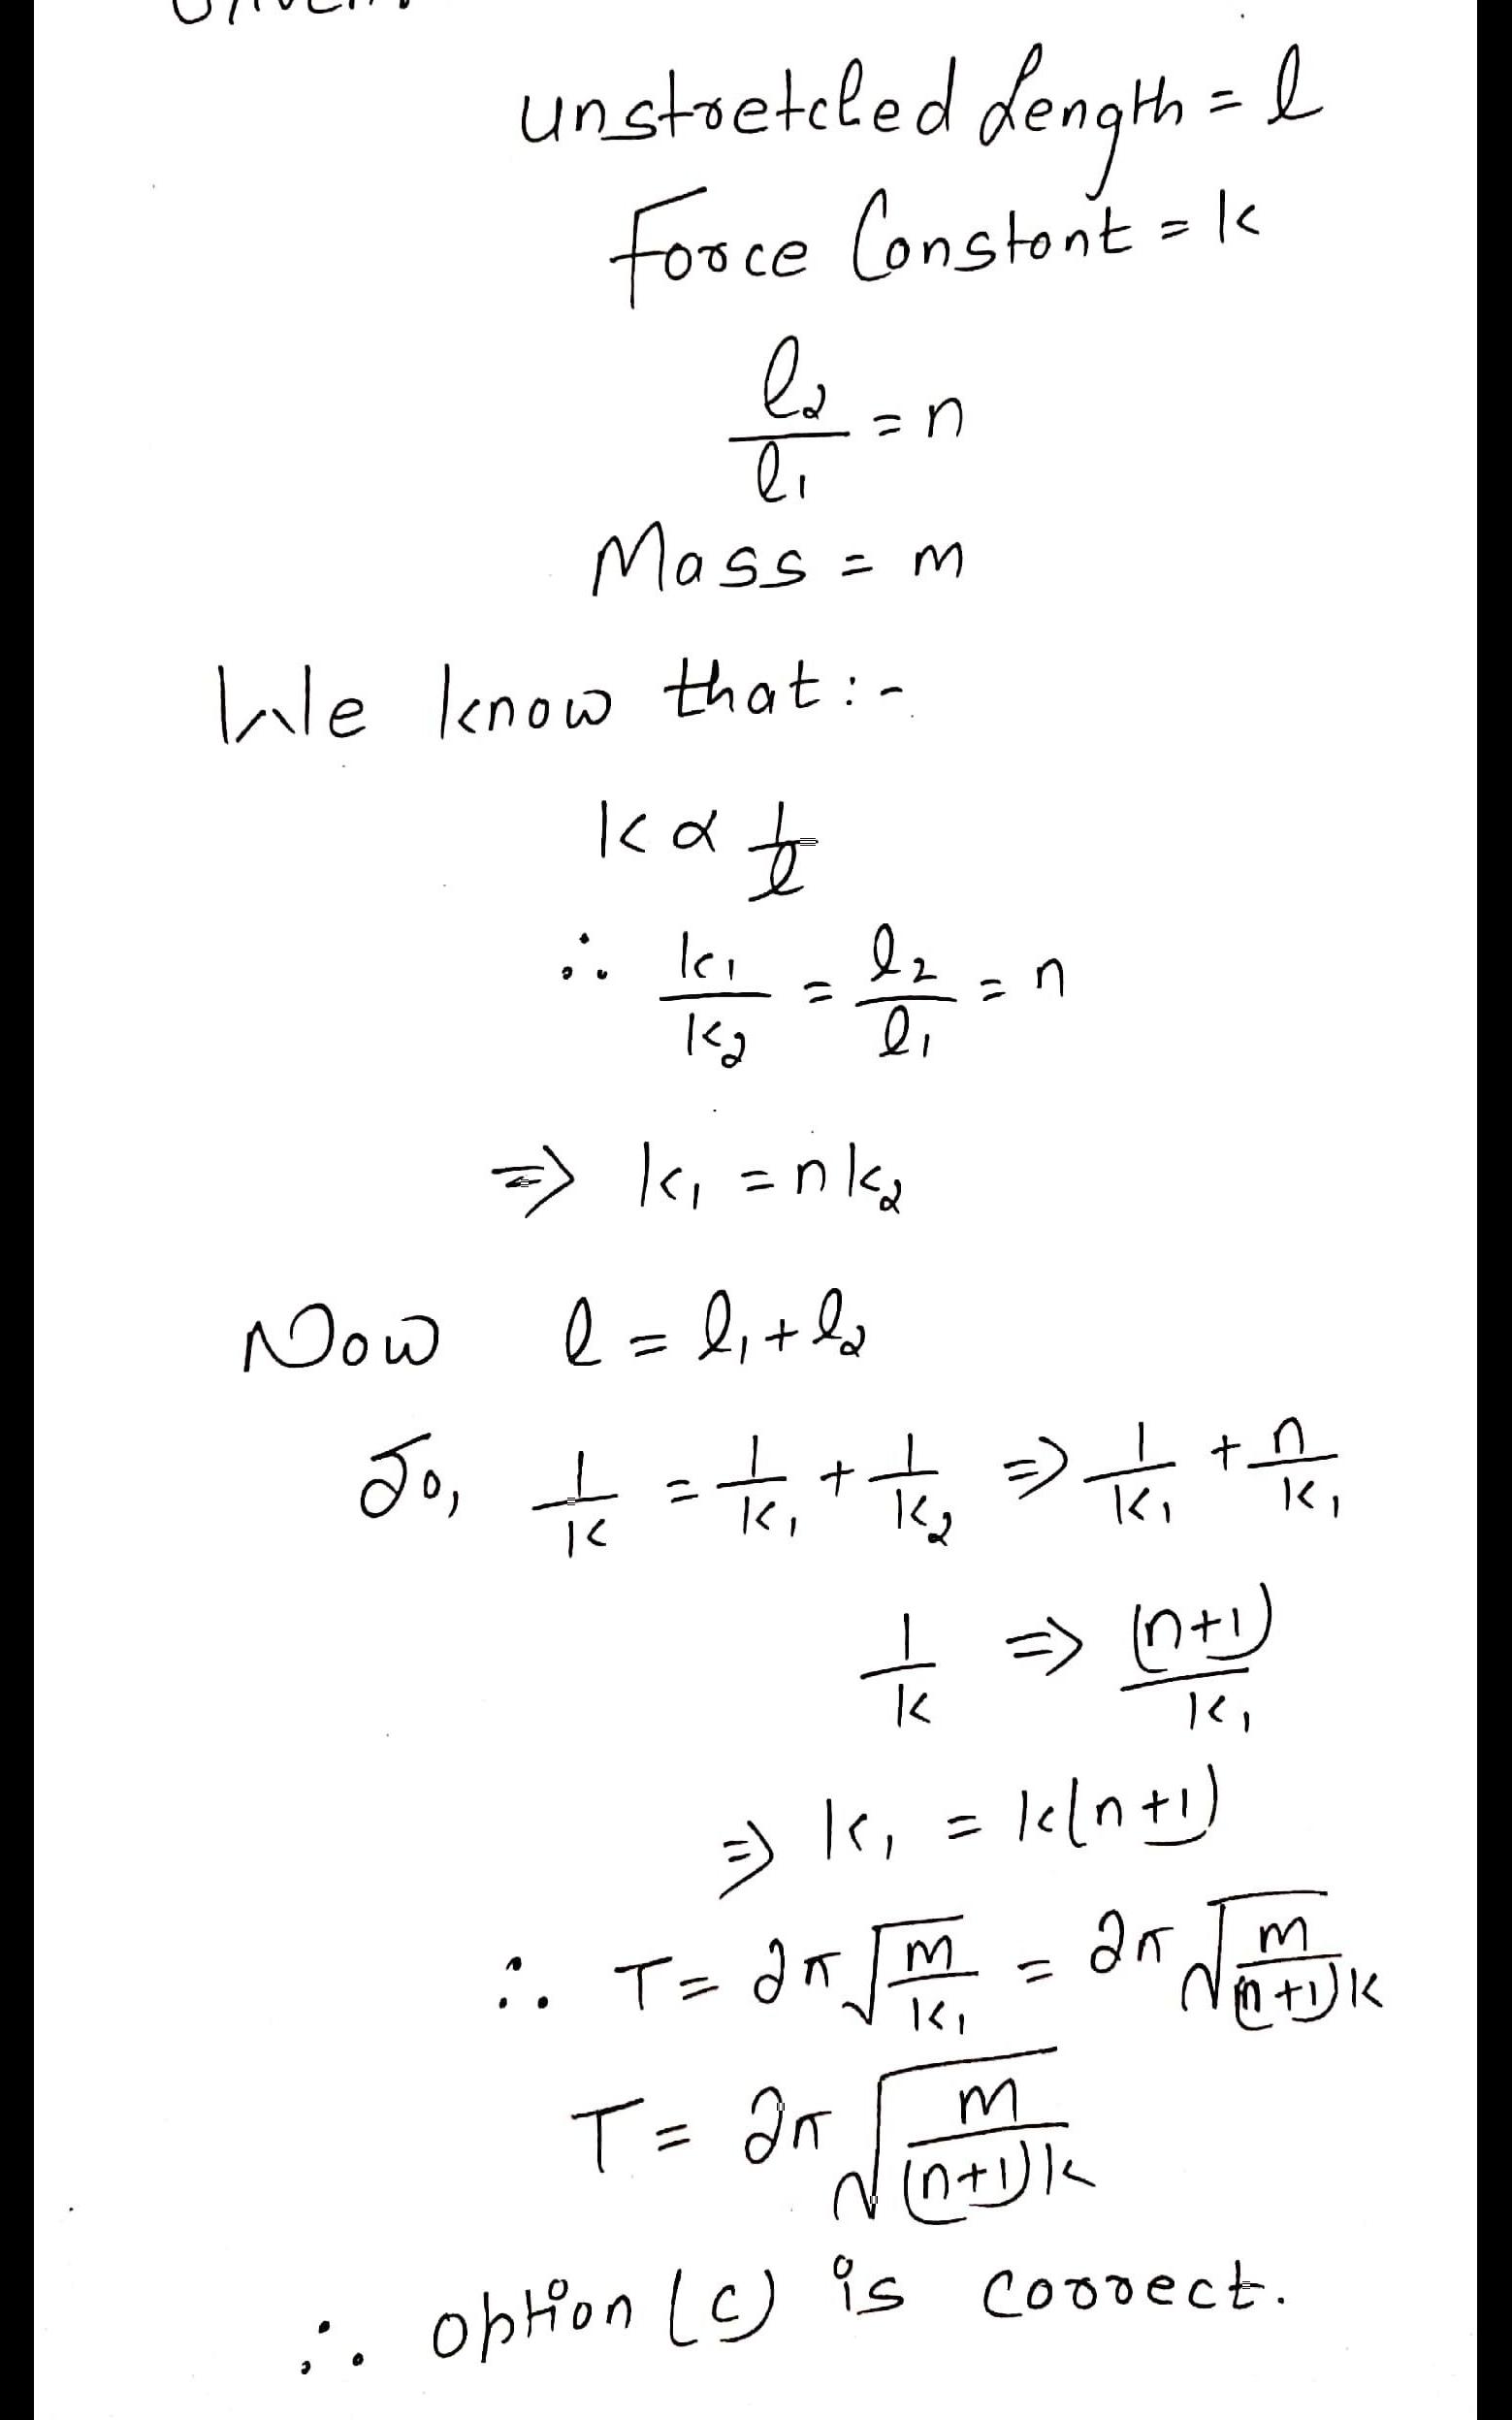 Given:
unstretched length = l
Force Constant = k
l₂/l₁ = n
Mass = m
We know that :-
k α 1/l
∴ k₁/k₂ = l₂/l₁ = n
=> k₁ = nk₂
Now l = l₁ + l₂
So, 1/k = 1/k₁ + 1/k₂ => 1/k₁ + n/k₁
1/k => (n+1)/k₁
=> k₁ = k(n+1)
∴ T = 2π√(m/k₁) = 2π√(m/(n+1)k)
T = 2π√(m/(n+1)k)
∴ option (c) is correct.